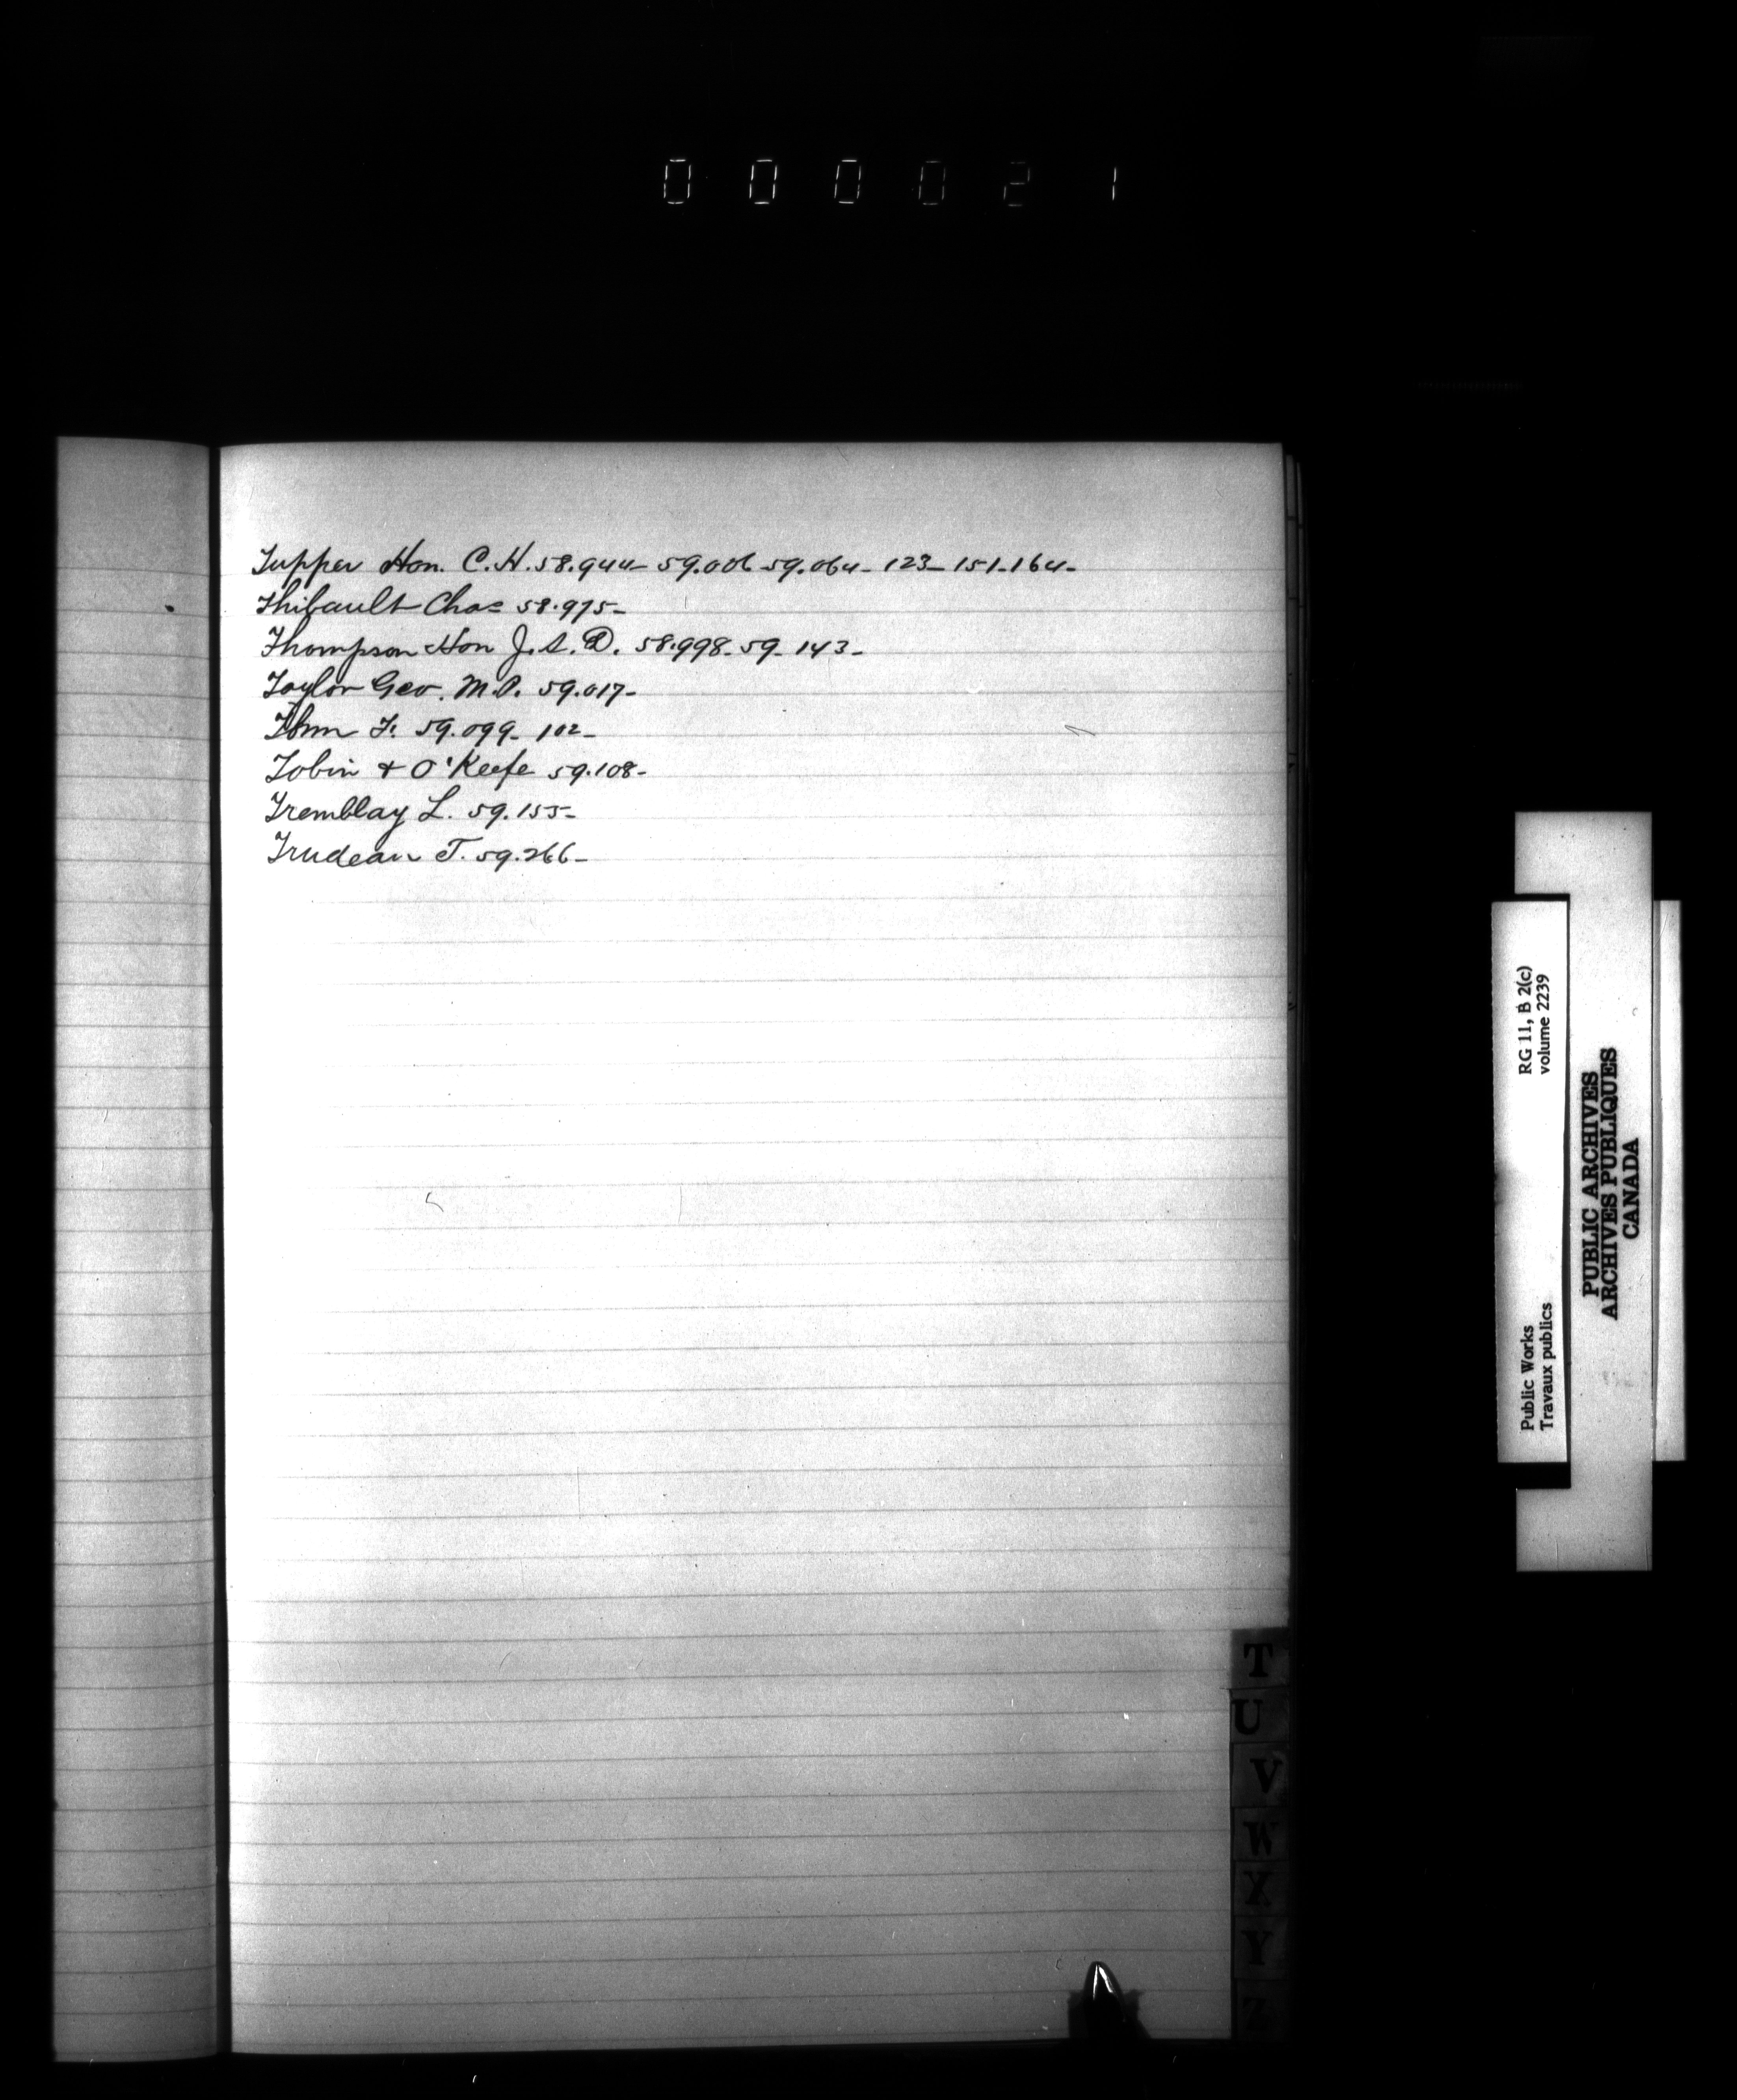 000021
Tupper Hon. C.H. 58.944- 59.006-59.064- 123- 151-164-
Thibault Chas 58.975-
Thompson Hon J.S.D. 58.998-59-143-
Taylor Geo. M.P. 59.017-
F. 59.099- 102-
Tobin & O'Keefe 59.108-
Tremblay L. 59.155-
Trudeau T. 59.266-
T
U
V
W
X
Y
Z
RG 11, B 2(c)
volume 2239
Public Works
Travaux publics
PUBLIC ARCHIVES
ARCHIVES PUBLIQUES
CANADA